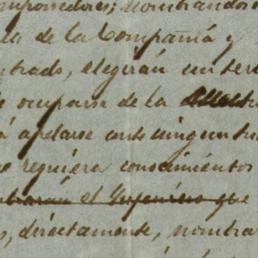 mponedores; nombrandos
la de la Compañía y
trado, elegirán un terc
e ocuparse de la
á apelarse ante ningun tri
e requiera conocimientos
braran el Ingeniero que
s, directamente, nombra